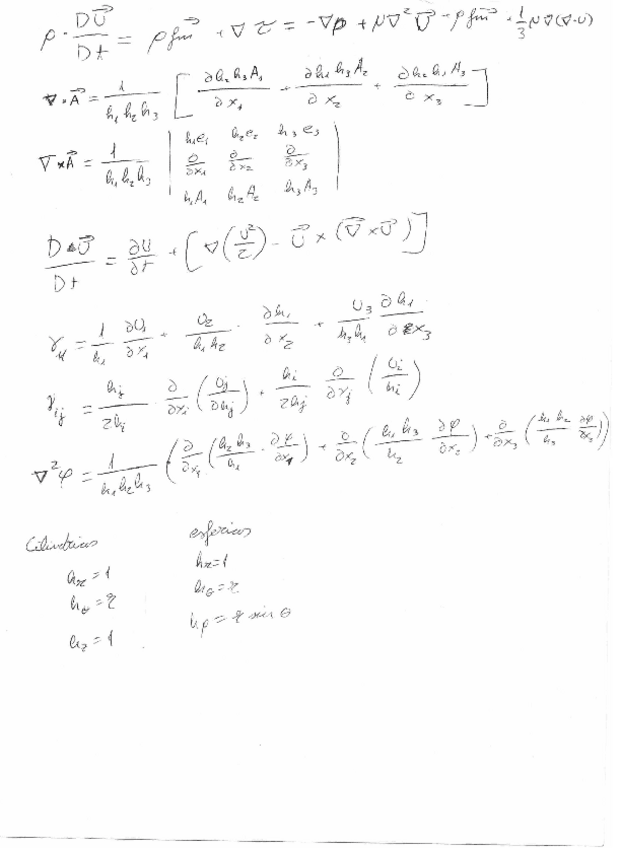 ρ · Dv⃗/Dt = ρ f⃗m + ∇ τ = -∇p + μ∇² v⃗ - ρ f⃗m + 1/3 μ ∇(∇·v)
∇·A⃗ = 1/(h₁ h₂ h₃) [ ∂h₂h₃A₁/∂x₁ + ∂h₁h₃A₂/∂x₂ + ∂h₂h₁A₃/∂x₃ ]
∇×A⃗ = 1/(h₁ h₂ h₃) | h₁e₁ h₂e₂ h₃e₃ ; ∂/∂x₁ ∂/∂x₂ ∂/∂x₃ ; h₁A₁ h₂A₂ h₃A₃ |
Dv⃗/Dt = ∂v/∂t + [ ∇(v²/2) - v⃗ × (∇⃗ × v⃗) ]
γ₁₁ = 1/h₁ ∂v₁/∂x₁ + v₂/(h₁ h₂) · ∂h₁/∂x₂ + v₃/(h₃ h₁) ∂h₁/∂x₃
γᵢⱼ = hⱼ/(2hᵢ) · ∂/∂xᵢ (vⱼ/hⱼ) + hᵢ/(2hⱼ) ∂/∂xⱼ (vᵢ/hᵢ)
∇²φ = 1/(h₁ h₂ h₃) ( ∂/∂x₁ (h₂ h₃/h₁ · ∂φ/∂x₁) + ∂/∂x₂ (h₁ h₃/h₂ ∂φ/∂x₂) + ∂/∂x₃ (h₁ h₂/h₃ ∂φ/∂x₃) )
Cilindricas esfericas
hr = 1 hr = 1
hθ = r hθ = r
hz = 1 hφ = r sin θ